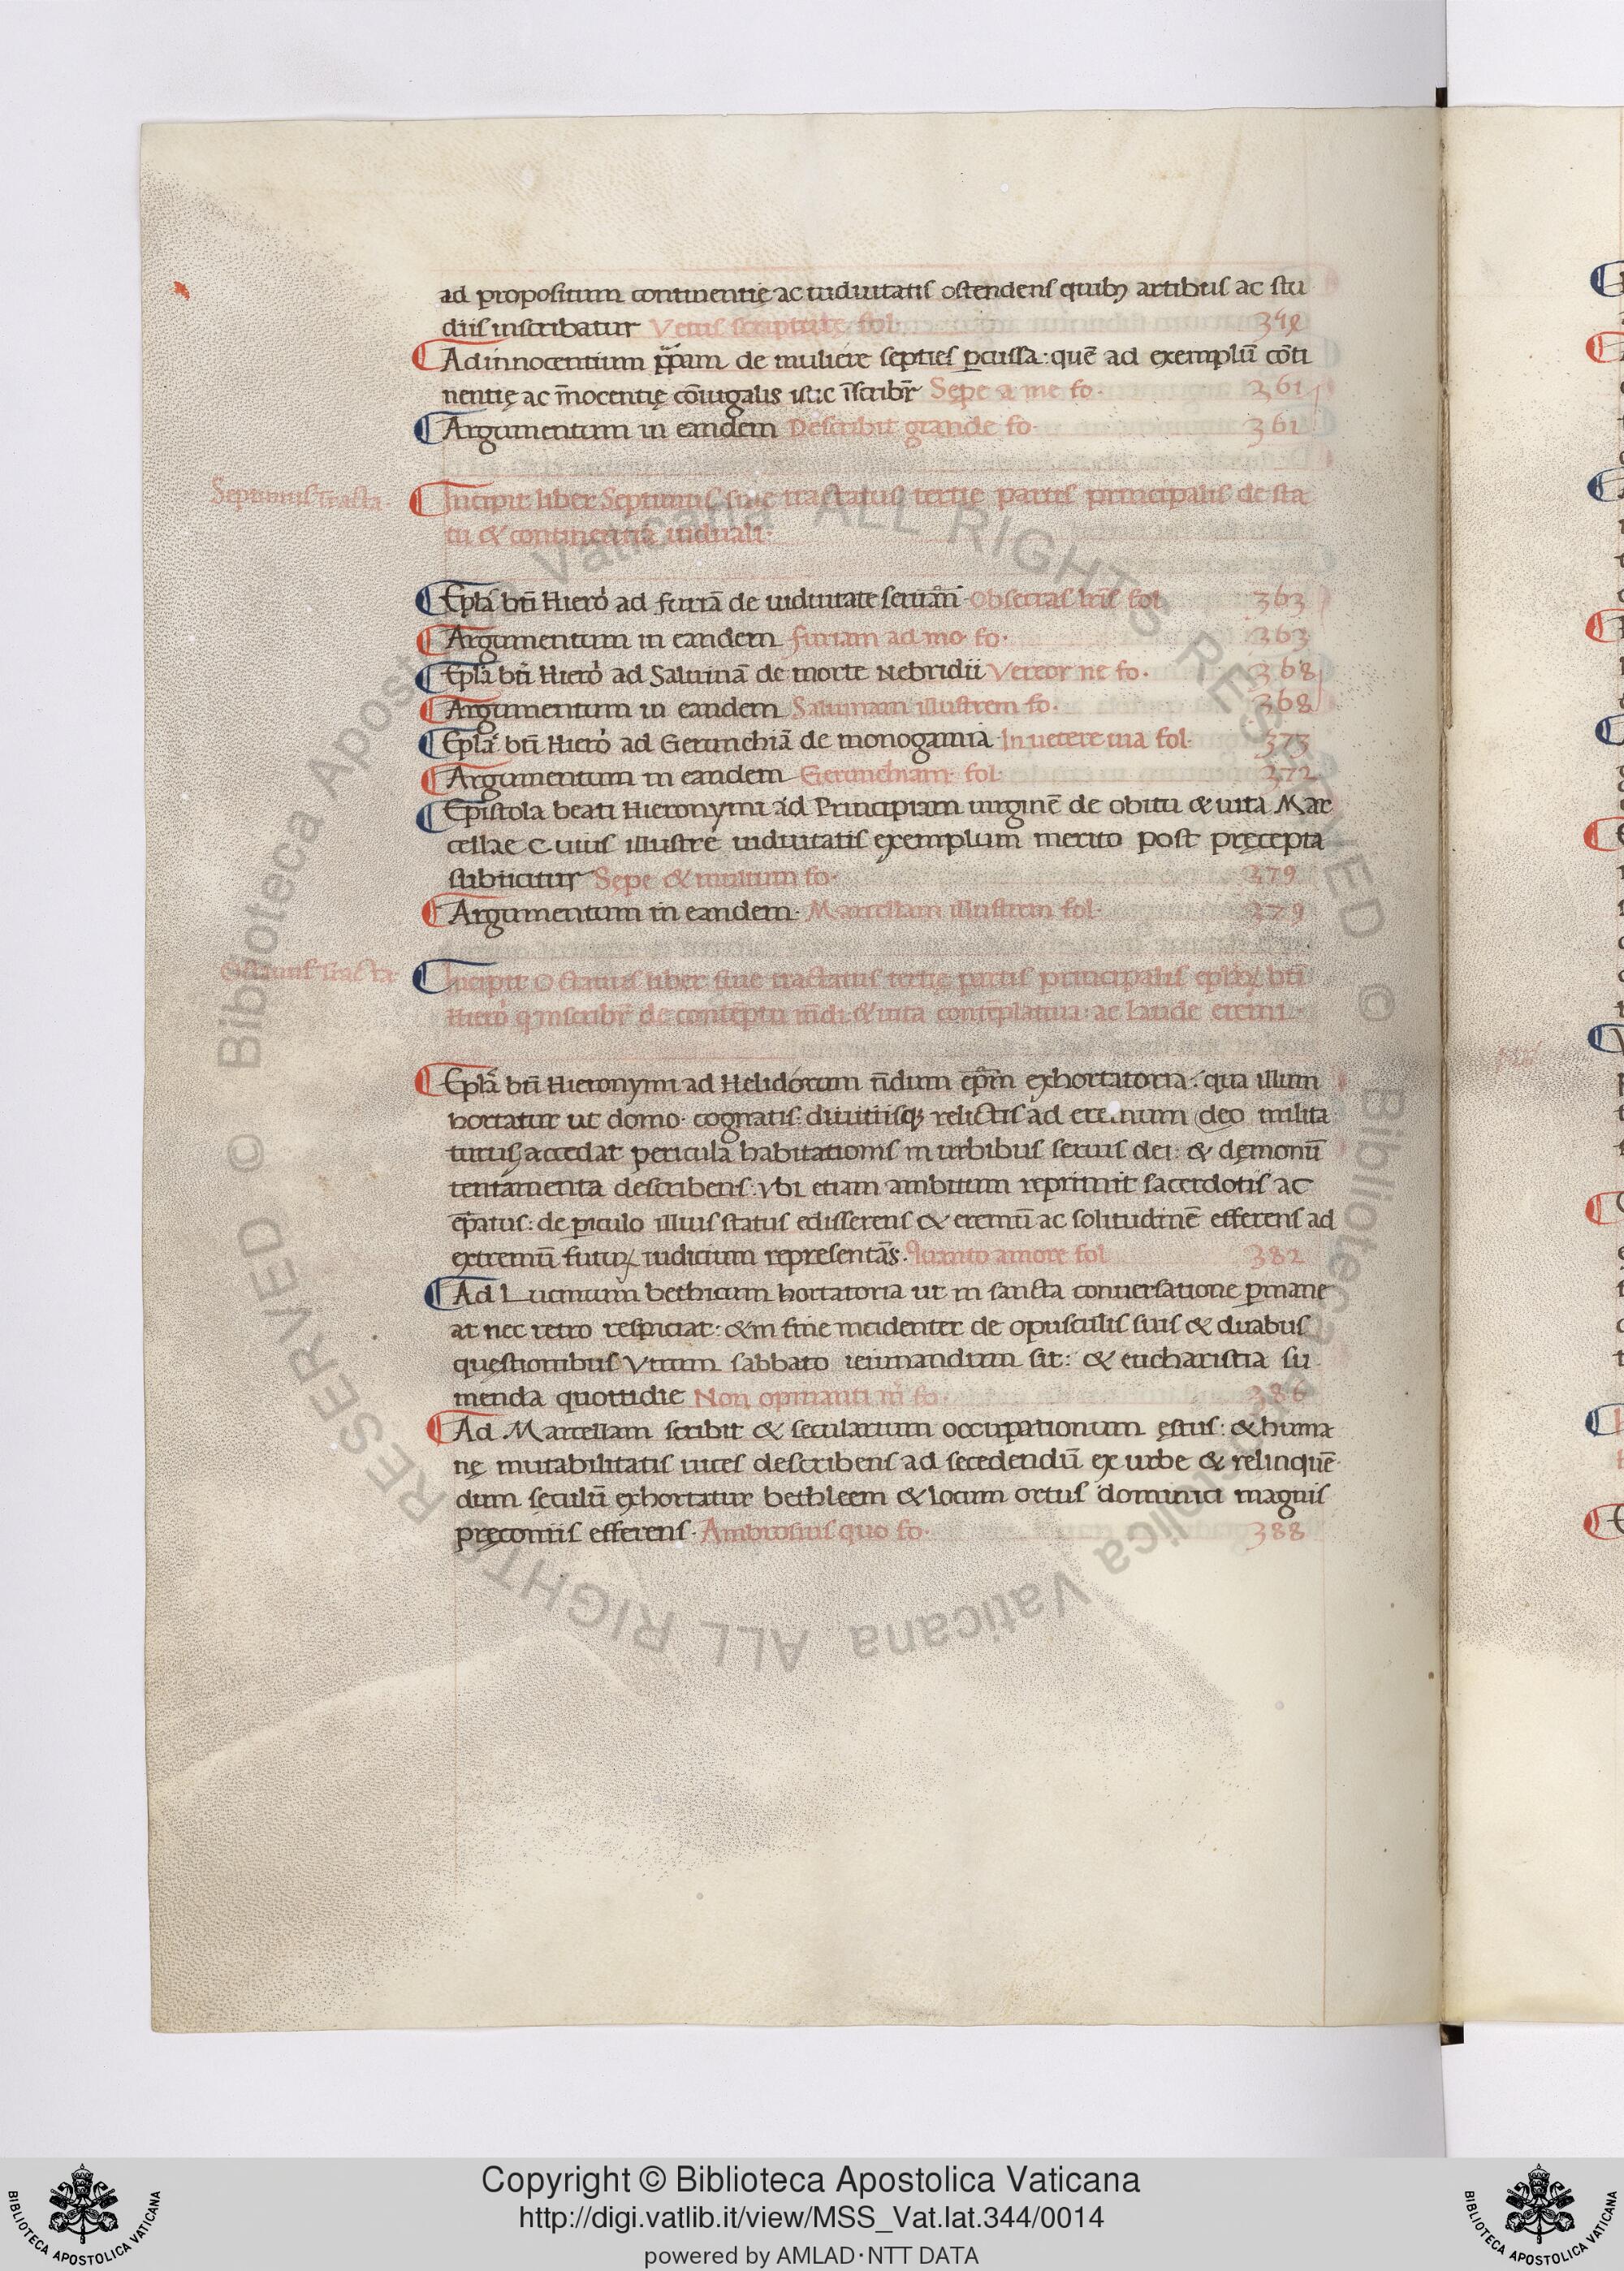 ad propositum continentię ac uiduitatis ostendens quibꝫ artibus ac stu
diis inscribatur Vetus scripture fol.
¶ Ad innocentium pp̄am de muliere septies ꝑcussa: quē ad exemplū cōti
nentię ac īnocentię cōiugalis istic īscribr̄ Sępe a me fo. 361
¶ Argumentum in eandem Describit grande fo. 361
Septimus tracta.
¶ Incipit liber Septimus siue tractatus tertię partis principalis de sta
tu & continentia uiduali.
¶ Epl̄a bt̄i Hiero ad furiā de uiduitate seruan̄. Obsecras lr̄is fol 363
¶ Argumentum in eandem furiam ad mo. fo. 363
¶ Epl̄a bt̄i Hiero ad Saluinā de morte Nebridii Vereor ne fo. 368
¶ Argumentum in eandem Saluinam illustrem fo. 368
¶ Epl̄a bt̄i Hiero ad Gerunchiā de monogamia. In uetere uia fol. 373
¶ Argumentum in eandem Gerunchiam. fol. 372
¶ Epistola beati Hieronymi ad Principiam uirginē de obitu & uita Mar
cellae Cuius illustre uiduitatis exemplum merito post pręcepta
subiicitur Sępe & multum fo. 379
¶ Argumentum in eandem. Marcellam illustrem fol. 379
Octauus tracta
¶ Incipit Octauus liber siue tractatus tertię partis principalis epl̄aꝝ bt̄i
Hiero q inscribr̄ de contēptu mūdi: & uita contēplatiua: ac laude eremi.
¶ Epl̄a bt̄i Hieronymi ad Helidorum n̄dum ep̄m exhortatoria: qua illum
hortatur ut domo. cognatis: diuitiisqꝫ relictis ad eremum deo milita
turus accedat pericula habitationis in urbibus seruis dei: & dęmonū
tentamenta describens: Vbi etiam ambitum reprimit sacerdotis ac
ep̄atus: de ꝑiculo illius status edisserens & eremū ac solitudinē efferens ad
extremū futuꝝ iudicium representās. Quanto amore fol 382
¶ Ad Lucinum bethicum hortatoria ut in sancta conuersatione ꝑmane
at nec retro respiciat: & in fine incidenter de opusculis suis & duabus
quęstionibus Vtrum sabbato ieiunandum sit: & eucharistia su
menda quottidie Non opinanti m̄ fo. 386
¶ Ad Marcellam scribit & secularium occupationum ęstus: & huma
nę mutabilitatis uices describens ad secedendū ex urbe & relinquē
dum seculū exhortatur bethleem & locum ortus dominici magnis
pręconiis efferens. Ambrosius quo fo. 388
© Biblioteca Apostolica Vaticana ALL RIGHTS RESERVED
© Biblioteca Apostolica Vaticana ALL RIGHTS RESERVED
Copyright © Biblioteca Apostolica Vaticana
http://digi.vatlib.it/view/MSS_Vat.lat.344/0014
powered by AMLAD·NTT DATA
BIBLIOTECA APOSTOLICA VATICANA
BIBLIOTECA APOSTOLICA VATICANA